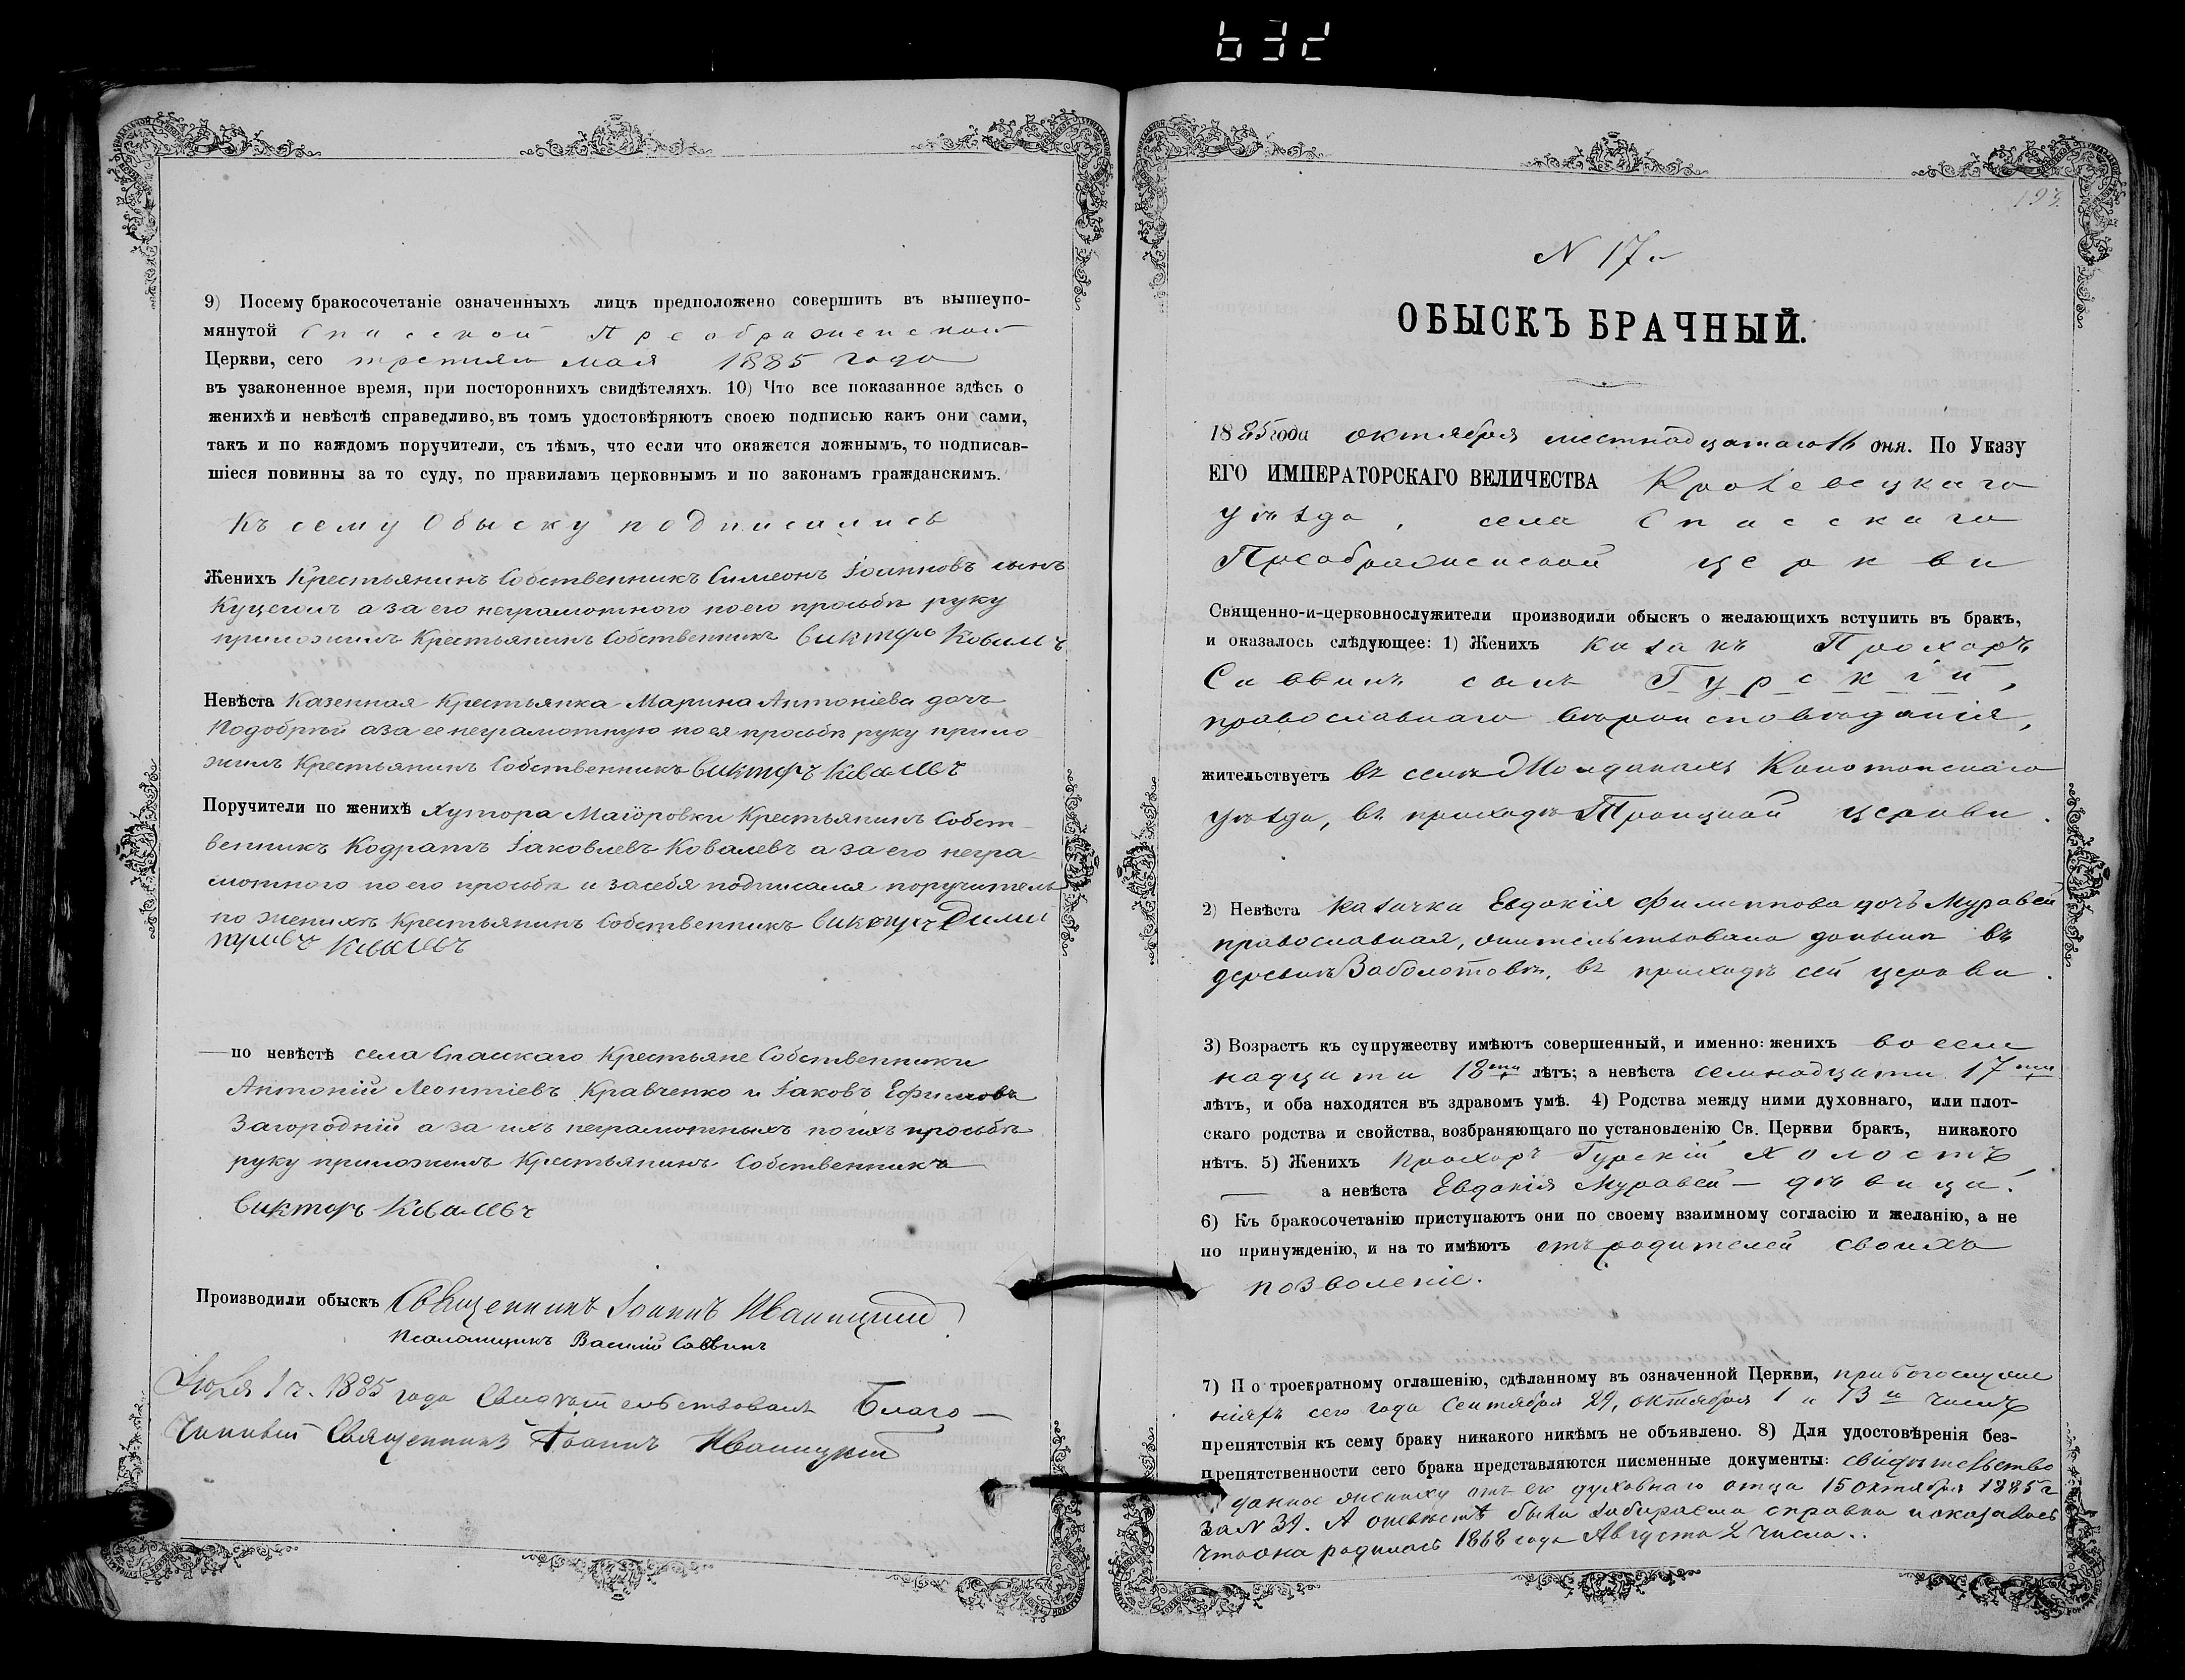 632
9) Посему бракосочетаніе означенныхъ лицъ предположено совершить въ вышеупо-
мянутой Спасской Преображенской
Церкви, сего третяго мая 1885 года
въ узаконенное время, при постороннихъ свидѣтеляхъ. 10) Что все показанное здѣсь о
женихѣ и невѣстѣ справедливо, въ томъ удостовѣряютъ своею подписью какъ они сами,
такъ и по каждомъ поручители, съ тѣмъ, что если что окажется ложнымъ, то подписав-
шіеся повинны за то суду, по правиламъ церковнымъ и по законамъ гражданскимъ.
Къ сему Обыску подписались
Женихъ Крестьянинъ Собственникъ Симеонъ Іоанновъ сынъ
а за его неграмотного по его просьбѣ руку
приложилъ Крестьянинъ Собственникъ Викторъ Ковалевъ
Невѣста Казенная Крестьянка Марина Антоніева дочь
Подобрѣй а за ее неграмотную по ея просьбѣ руку прило-
жилъ Крестьянинъ Собственникъ Викторъ Ковалевъ
Поручители по женихѣ Хутора Маіоровки Крестьянинъ Собст-
венникъ Кодратъ Іаковлевъ Ковалевъ а за его негра-
мотного по его просьбѣ и за себя подписался поручитель
по женихѣ Крестьянинъ Собственникъ Викторъ Дими
тріевъ Ковалевъ
по невѣстѣ села Спаскаго Крестьяне Собственники
Антоній Леонтіевъ Кравченко и Іаковъ Ефимовъ
Загородній а за ихъ неграмотныхъ по ихъ просьбѣ
руку приложилъ Крестьянинъ Собственникъ
Викторъ Ковалевъ
Производили обыскъ Священникъ Іоаннъ Иваницкій
Псаломщикъ Василій Саввинъ
1 ч. 1885 года Свидѣтельствовалъ Благо-
чинный Священникъ Іоаннъ Иваницкій
193.
N 17.
ОБЫСКЪ БРАЧНЫЙ.
1885 года октября шестнадцатаго 16 дня. По Указу
ЕГО ИМПЕРАТОРСКАГО ВЕЛИЧЕСТВА Кролевецкаго
уѣзда, села Спасскаго
Преображенской церкви
Священно-и-церковнослужители производили обыскъ о желающихъ вступить въ бракъ,
и оказалось слѣдующее: 1) Женихъ казакъ Прохоръ
Саввинъ сынъ Гурскій,
православнаго вѣроисповѣданія,
жительствуетъ въ селѣ Конотопскаго
уѣзда, въ приходѣ Троицкой церкви.
2) Невѣста казачка Евдокія Филиппова дочь Муравей
православная, жительствовала донынѣ въ
деревнѣ Заболотовѣ, въ приходѣ сей церкви.
3) Возрастъ къ супружеству имѣютъ совершенный, и именно: женихъ восем
надцати 18ти лѣтъ; а невѣста семнадцати 17ти
лѣтъ, и оба находятся въ здравомъ умѣ. 4) Родства между ними духовнаго, или плот-
скаго родства и свойства, возбраняющаго по установленію Св. Церкви бракъ, никакого
нѣтъ. 5) Женихъ Прохоръ Гурскій холостъ,
а невѣста Евдокія Муравей — дѣвица.
6) Къ бракосочетанію приступаютъ они по своему взаимному согласію и желанію, а не
по принужденію, и на то имѣютъ отъ родителей своихъ
позволеніе.
7) По троекратному оглашенію, сдѣланному въ означенной Церкви, при богослуже
ніяхъ сего года Сентября 29, октября 1 и 13 чиселъ
препятствія къ сему браку никакого никѣмъ не объявлено. 8) Для удостовѣренія без-
препятственности сего брака представляются писменные документы: свидѣтельство
данное жениху отъ его духовнаго отца 15 октября 1885 г
за N 39. А о невѣстѣ была забираема справка и оказалось
что она родилась 1868 года Августа 2 числа.